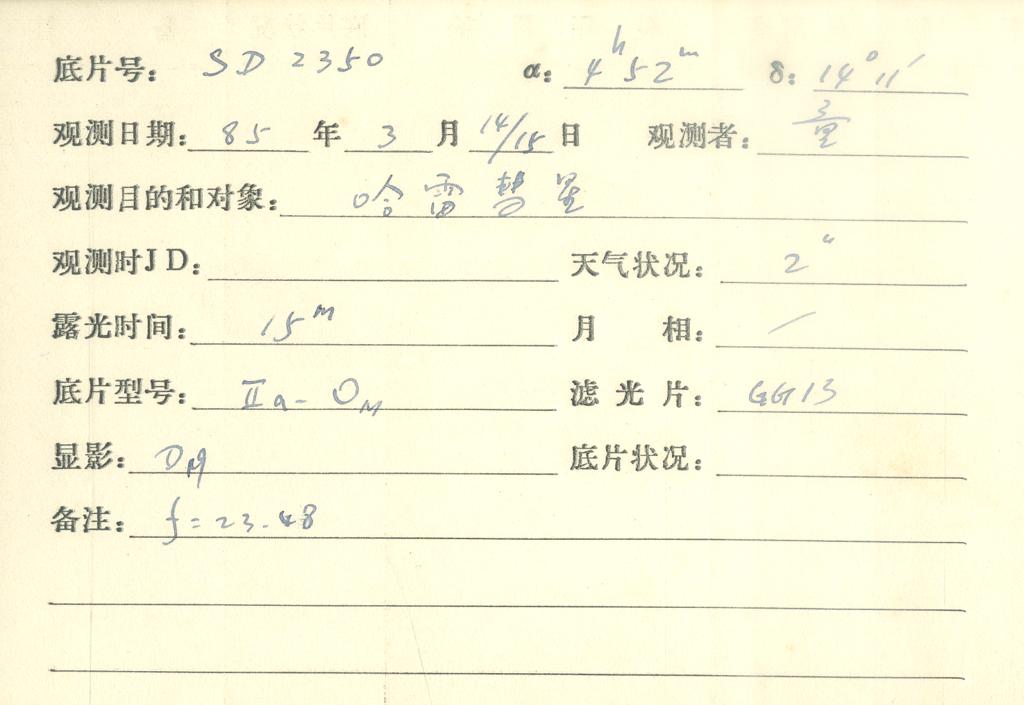 底片号: SD 2350 α: 4ʰ52ᵐ δ: 14°11′
观测日期: 85 年 3 月 14/15 日 观测者:
观测目的和对象: 哈雷彗星
观测时JD: 天气状况: 2"
露光时间: 15ᴹ 月 相: /
底片型号: IIa-O 滤光片: GG13
显影: 底片状况:
备注: f=23.48